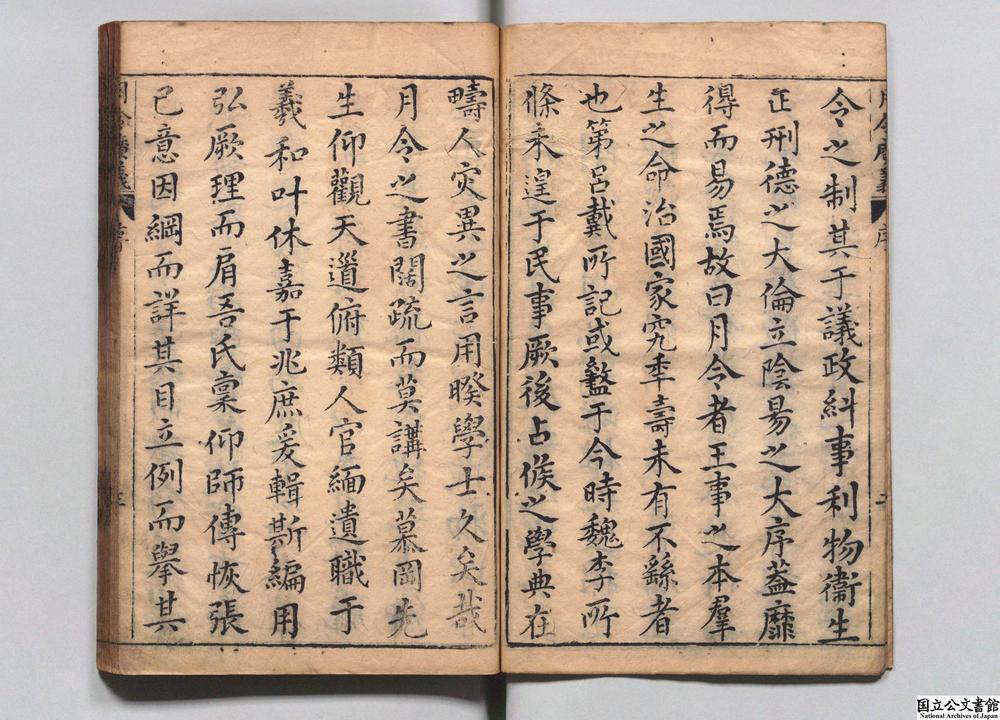 令之制其于議政糾事利物衞生
正刑德之大倫立陰昜之大序葢靡
得而易焉故曰月令者王事之本羣
生之命治國家究秊壽未有不繇者
也第呂戴所記或盭于今時魏李所
條未遑于民事厥後占候之學典在
疇人灾異之言用暌學士久矣哉
月令之書闊疏而莫講矣慕岡先
生仰觀天道俯類人官緬遺職于
羲和叶休嘉于兆庶爰輯斯編用
弘厥理而肩吾氏稟仰師傳恢張
已意因綱而詳其目立例而舉其
月令廣義
序
月令廣義
序
国立公文書館
National Archives of Japan